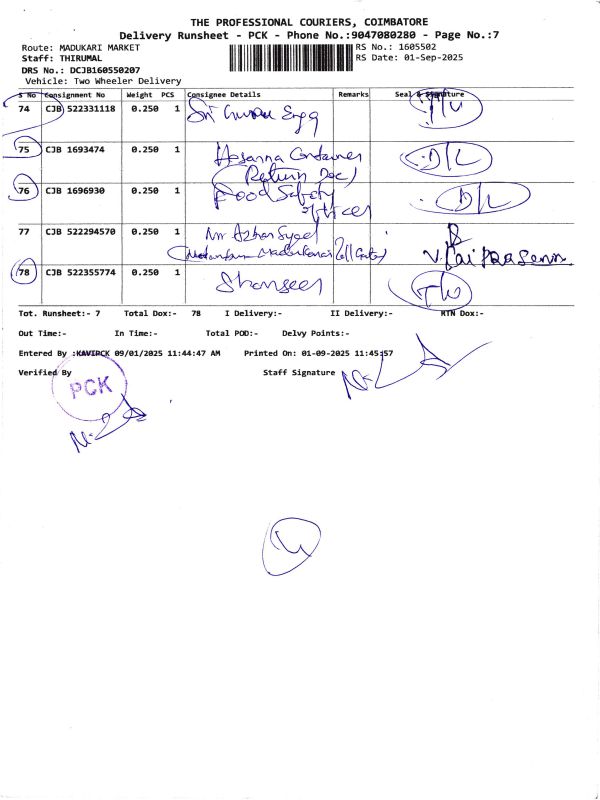 THE PROFESSIONAL COURIERS, COIMBATORE
Delivery Runsheet - PCK - Phone No.:9047080280 - Page No.:7
Route: MADUKARI MARKET RS No.: 1605502
Staff: THIRUMAL RS Date: 01-Sep-2025
DRS No.: DCJB160550207
Vehicle: Two Wheeler Delivery
S No Consignment No Weight PCS Consignee Details Remarks Seal & Signature
74 CJB 522331118 0.250 1 Sri
75 CJB 1693474 0.250 1 Hosanna Container D/L
(Return Doc)
76 CJB 1696930 0.250 1 Food Safety D/L
Officer
77 CJB 522294570 0.250 1 Mr Azhar Syed
78 CJB 522355774 0.250 1
Tot. Runsheet:- 7 Total Dox:- 78 I Delivery:- II Delivery:- RTN Dox:-
Out Time:- In Time:- Total POD:- Delvy Points:-
Entered By :KAVIPCK 09/01/2025 11:44:47 AM Printed On: 01-09-2025 11:45:57
Verified By Staff Signature
PCK